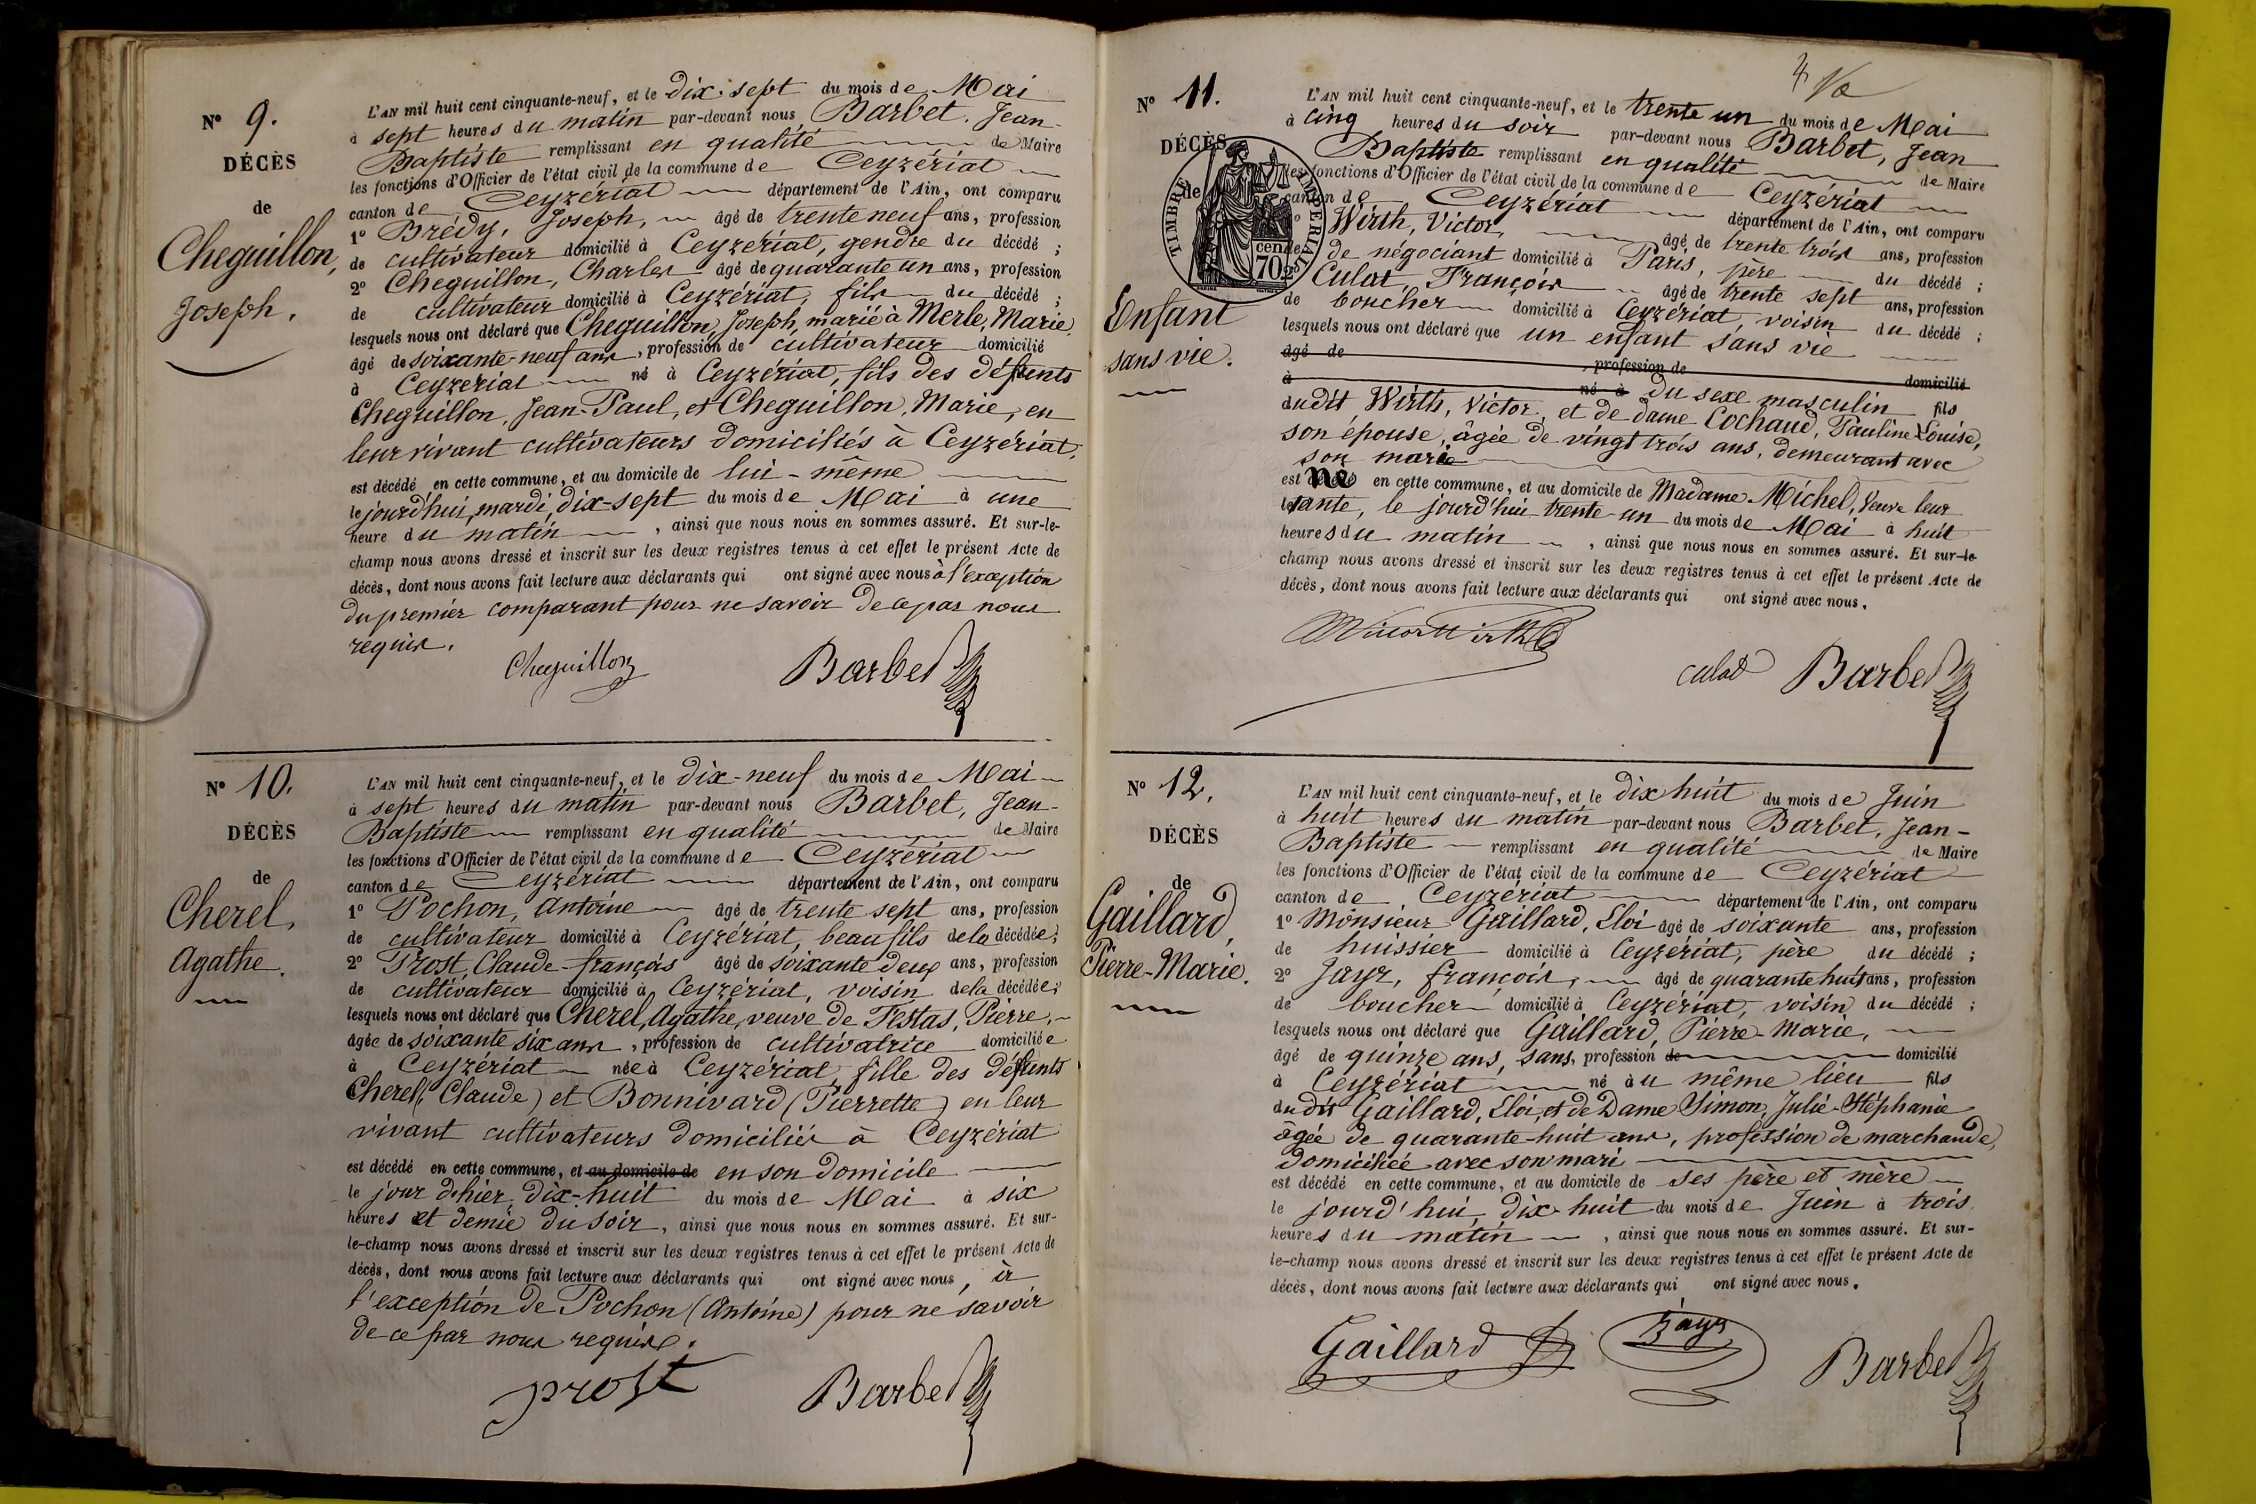 N° 9.
DÉCÈS
de
Cheguillon,
Joseph.
L'AN mil huit cent cinquante-neuf, et le dix-sept du mois de Mai
à sept heures du matin par-devant nous Barbet, Jean-
Baptiste remplissant en qualité de Maire
les fonctions d'Officier de l'état civil de la commune de Ceyzériat
canton de Ceyzériat département de l'Ain, ont comparu
1° Brédy, Joseph, âgé de trente neuf ans, profession
de cultivateur domicilié à Ceyzériat, gendre du décédé ;
2° Cheguillon, Charles âgé de quarante un ans, profession
de cultivateur domicilié à Ceyzériat, fils du décédé ;
lesquels nous ont déclaré que Cheguillon, Joseph, marié à Merle, Marie,
âgé de soixante-neuf ans, profession de cultivateur domicilié
à Ceyzériat né à Ceyzériat, fils des défunts
Cheguillon, Jean-Paul, et Cheguillon, Marie, en
leur vivant cultivateurs domiciliés à Ceyzériat,
est décédé en cette commune, et au domicile de lui-même
le jourd'hui, mardi, dix-sept du mois de Mai à une
heure du matin, ainsi que nous nous en sommes assuré. Et sur-le-
champ nous avons dressé et inscrit sur les deux registres tenus à cet effet le présent Acte de
décès, dont nous avons fait lecture aux déclarants qui ont signé avec nous à l'exception
du premier comparant pour ne savoir de ce par nous
requis.
Cheguillon Barbet
N° 10.
DÉCÈS
de
Cherel,
Agathe.
L'AN mil huit cent cinquante-neuf, et le dix-neuf du mois de Mai
à sept heures du matin par-devant nous Barbet, Jean-
Baptiste remplissant en qualité de Maire
les fonctions d'Officier de l'état civil de la commune de Ceyzériat
canton de Ceyzériat département de l'Ain, ont comparu
1° Pochon, Antoine âgé de trente sept ans, profession
de cultivateur domicilié à Ceyzériat, beau fils de la décédée ;
2° Prost, Claude-françois âgé de soixante deux ans, profession
de cultivateur domicilié à Ceyzériat, voisin de la décédée ;
lesquels nous ont déclaré que Cherel, Agathe, veuve de Festas, Pierre,
âgée de soixante six ans, profession de cultivatrice domiciliée
à Ceyzériat née à Ceyzériat, fille des défunts
Cherel (Claude) et Bonnivard (Pierrette) en leur
vivant cultivateurs domiciliés à Ceyzériat
est décédé en cette commune, et au domicile de en son domicile
le jour d'hier, dix-huit du mois de Mai à six
heures et demie du soir, ainsi que nous nous en sommes assuré. Et sur-
le-champ nous avons dressé et inscrit sur les deux registres tenus à cet effet le présent Acte de
décès, dont nous avons fait lecture aux déclarants qui ont signé avec nous, à
l'exception de Pochon (Antoine) pour ne savoir
de ce par nous requis.
prost Barbet
N° 11.
DÉCÈS
de
Enfant
sans vie.
TIMBRE IMPÉRIAL
70
L'AN mil huit cent cinquante-neuf, et le trente un du mois de Mai
à cinq heures du soir par-devant nous Barbet, Jean
Baptiste remplissant en qualité de Maire
les fonctions d'Officier de l'état civil de la commune de Ceyzériat
canton de Ceyzériat département de l'Ain, ont comparu
Wirth, Victor, âgé de trente trois ans, profession
de négociant domicilié à Paris, père du décédé ;
Culat, François âgé de trente sept ans, profession
de boucher domicilié à Ceyzériat, voisin du décédé ;
lesquels nous ont déclaré que un enfant sans vie
âgé de , profession de domicilié
à né à du sexe masculin fils
dudit Wirth, Victor, et de dame Cochaud, Pauline Louise,
son épouse, âgée de vingt trois ans, demeurant avec
son mari
est né en cette commune, et au domicile de Madame Michel, Veuve leur
tante, le jourd'hui trente-un du mois de Mai à huit
heures du matin, ainsi que nous nous en sommes assuré. Et sur-le-
champ nous avons dressé et inscrit sur les deux registres tenus à cet effet le présent Acte de
décès, dont nous avons fait lecture aux déclarants qui ont signé avec nous.
Victor Wirth
culat Barbet
N° 12.
DÉCÈS
de
Gaillard,
Pierre-Marie.
L'AN mil huit cent cinquante-neuf, et le dix huit du mois de Juin
à huit heures du matin par-devant nous Barbet, Jean-
Baptiste remplissant en qualité de Maire
les fonctions d'Officier de l'état civil de la commune de Ceyzériat
canton de Ceyzériat département de l'Ain, ont comparu
1° Monsieur Gaillard, Eloi âgé de soixante ans, profession
de huissier domicilié à Ceyzériat, père du décédé ;
2° Jayr, françois, âgé de quarante huit ans, profession
de boucher domicilié à Ceyzériat, voisin du décédé ;
lesquels nous ont déclaré que Gaillard, Pierre-Marie,
âgé de quinze ans, sans profession de domicilié
à Ceyzériat né au même lieu fils
dudit Gaillard, Eloi, et de Dame Simon, Julie-Stéphanie
âgée de quarante-huit ans, profession de marchande,
domiciliée avec son mari
est décédé en cette commune, et au domicile de ses père et mère
le jourd'hui dix-huit du mois de Juin à trois
heures du matin, ainsi que nous nous en sommes assuré. Et sur-
le-champ nous avons dressé et inscrit sur les deux registres tenus à cet effet le présent Acte de
décès, dont nous avons fait lecture aux déclarants qui ont signé avec nous.
Gaillard Jayr Barbet